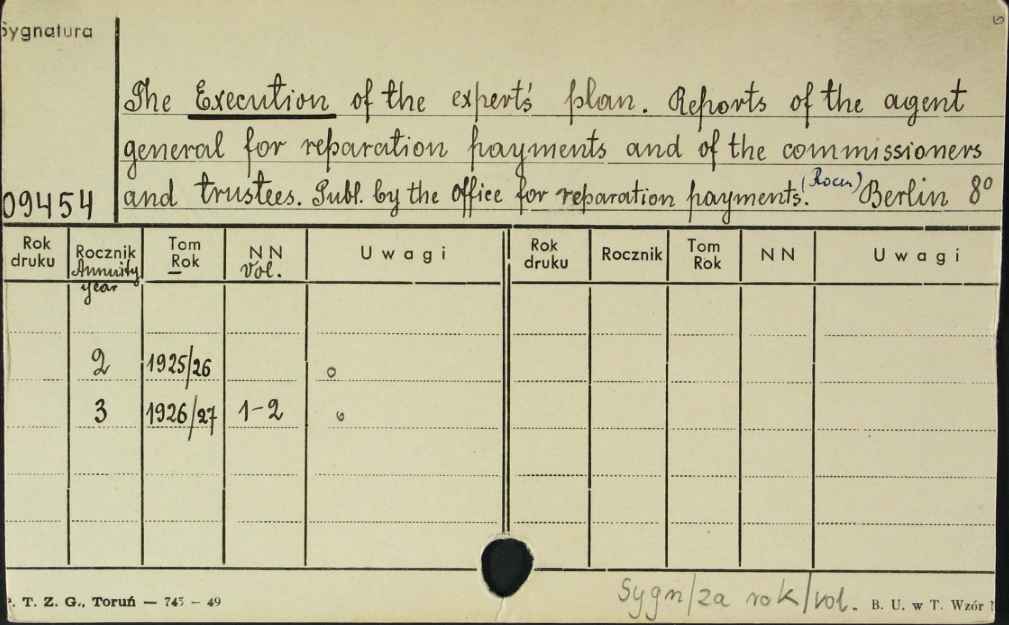 Sygnatura
The Execution of the expert's plan. Reports of the agent
general for reparation payments and of the commissioners
09454 and trustees. Publ. by the office for reparation payments. (Rocz.) Berlin 8°
Rok druku Rocznik Annuity year Tom Rok NN Vol. Uwagi Rok druku Rocznik Tom Rok NN Uwagi
2 1925/26
3 1926/27 1-2
. T. Z. G., Toruń — 745 — 49
Sygn/za rok/vol. B. U. w T. Wzór